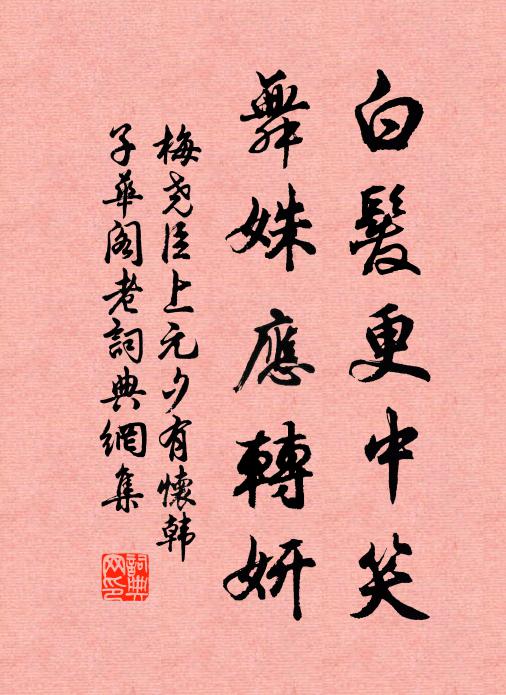 白髮更中笑
舞姝應轉妍
梅堯臣上元夕有懷韓
子華閣老詞典網集
詞典
网印